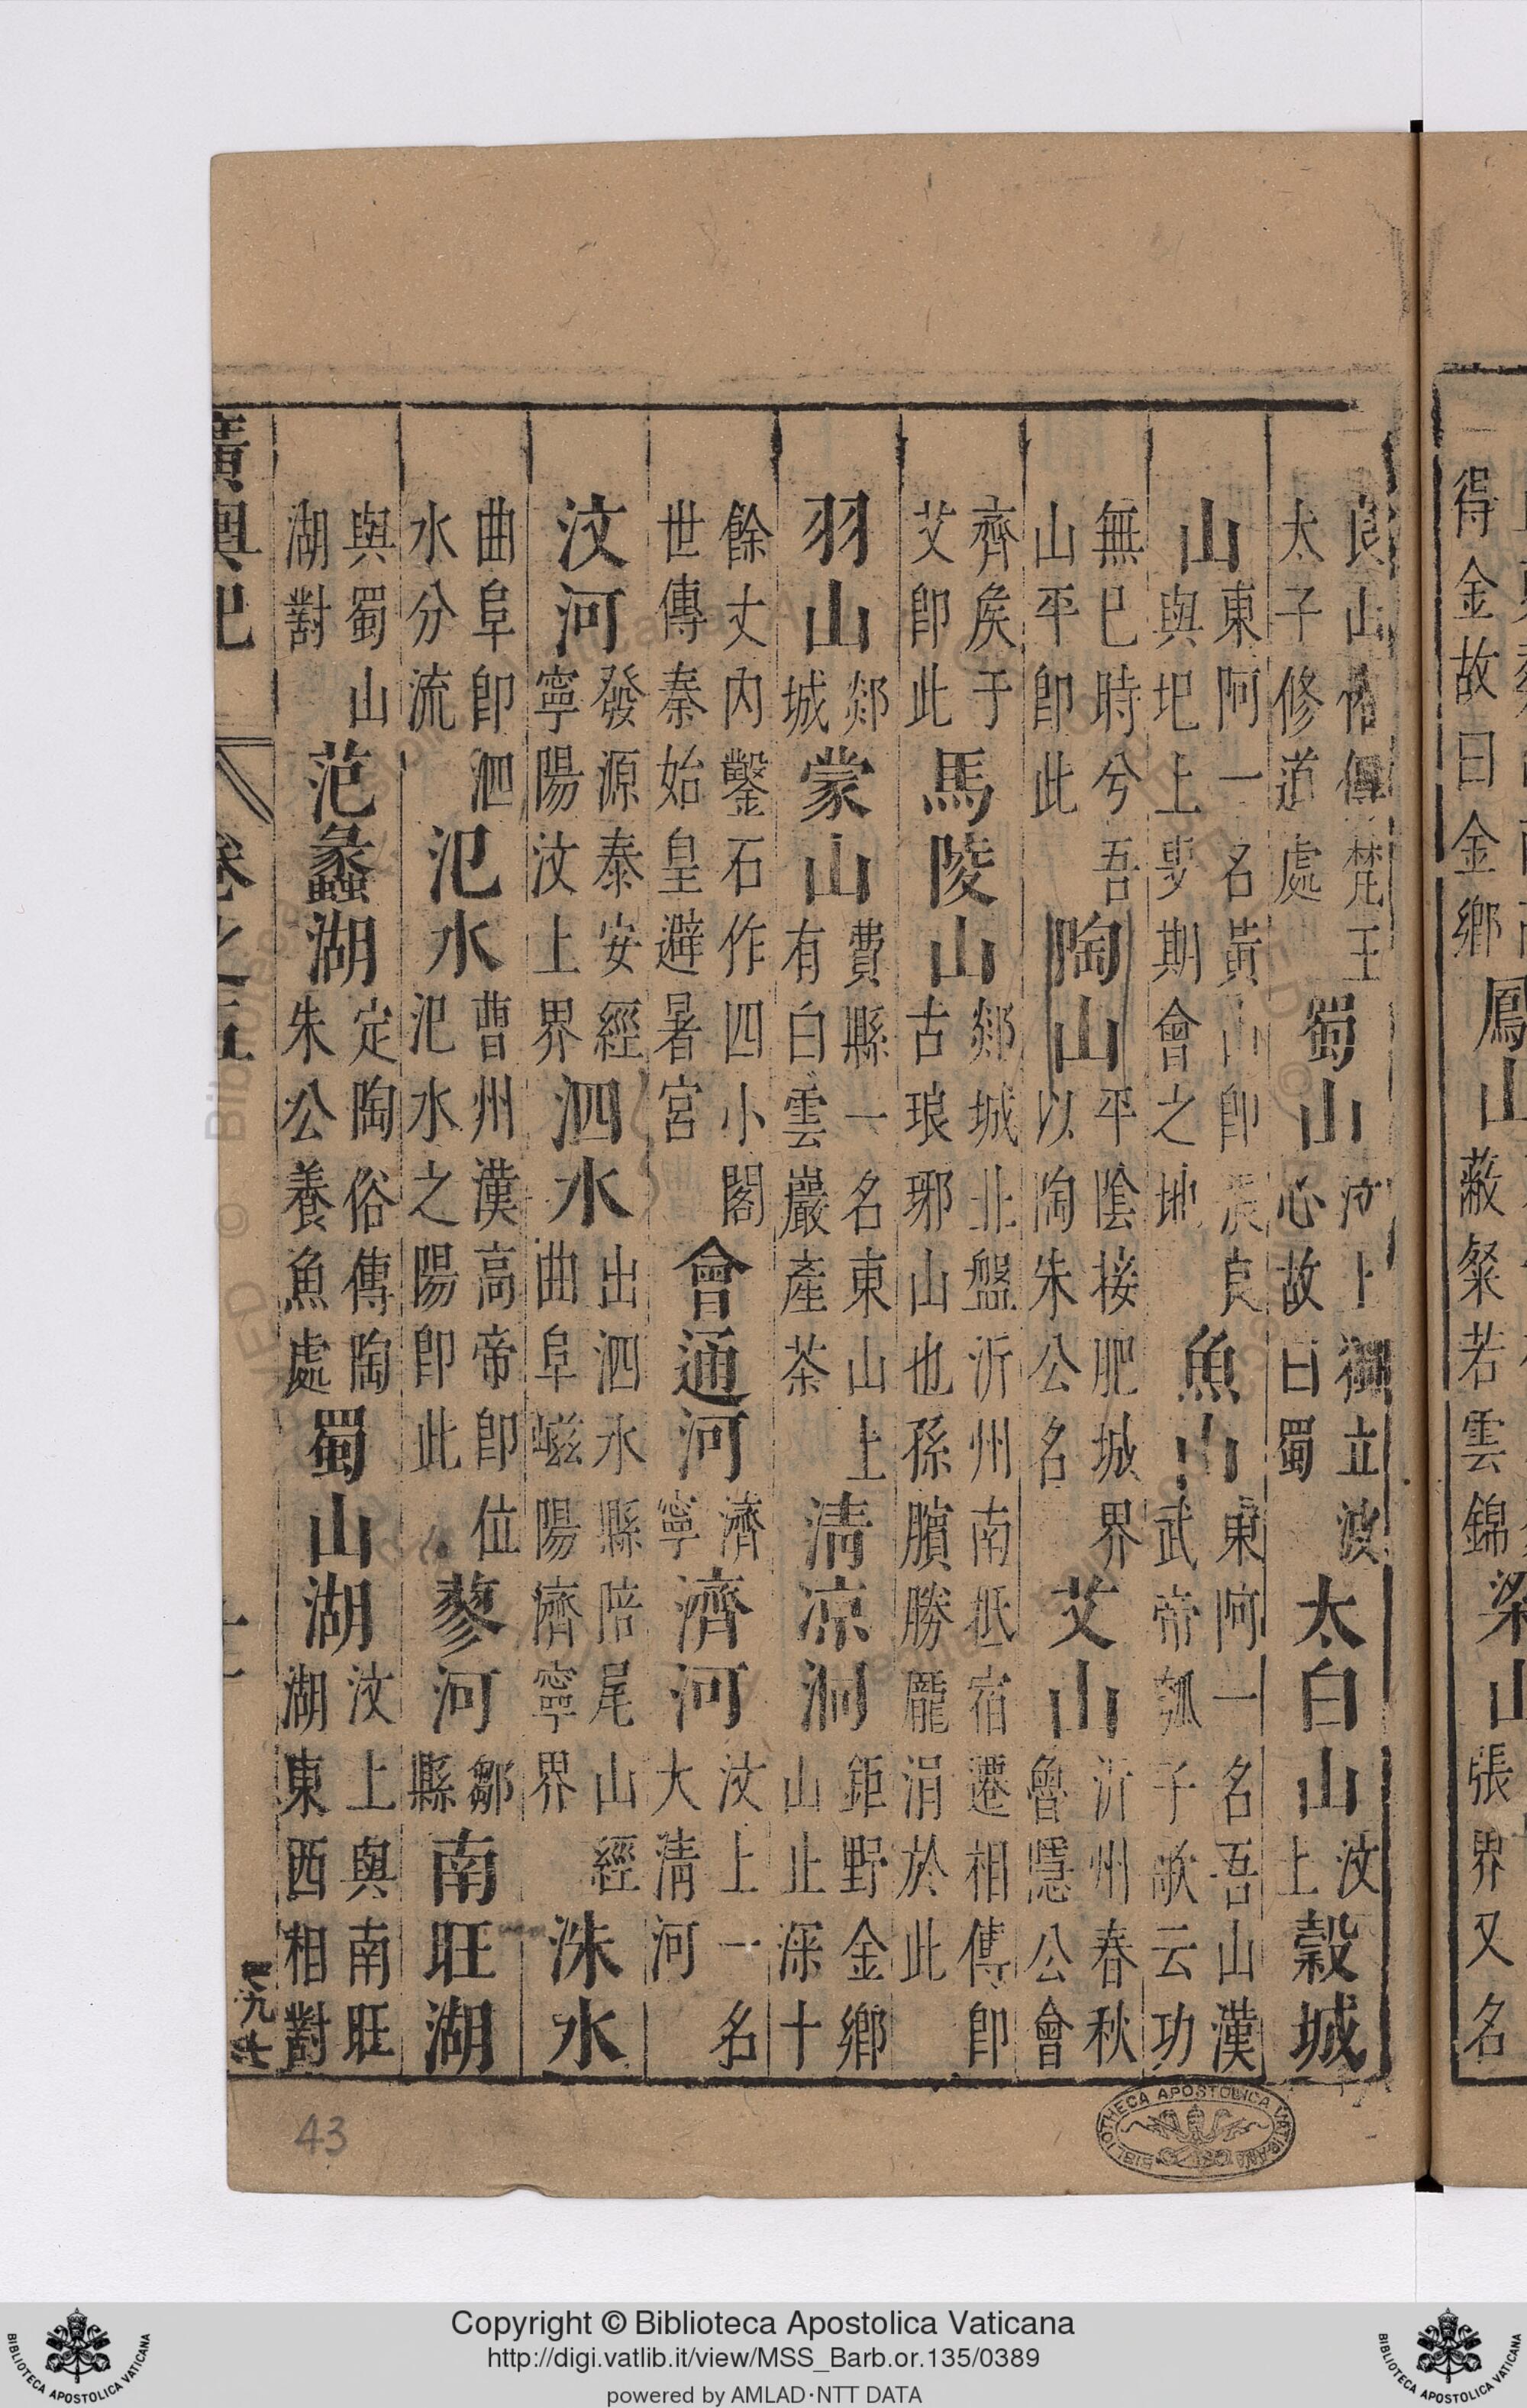 得金故曰金鄉鳳山蔽粲若雲錦梁山張界又名
良山俗傳梵王太子修道處蜀山汶上獨立波心故曰蜀太白山汶上穀城
山東阿一名黃山即張良與圯上叟期會之地魚山東阿一名吾山漢武帝瓠子歌云功
無已時兮吾山平即此陶山平陰接肥城界以陶朱公名艾山沂州春秋魯隱公會
齊矦于艾即此馬陵山郯城北盤沂州南抵宿遷相傳即古琅琊山也孫臏勝龐涓於此
羽山郯城蒙山費縣一名東山上有白雲巖產茶清凉洞鉅野金鄉山止深十
餘丈內鑿石作四小閣世傳秦始皇避暑宮會通河濟寧濟河汶上一名大清河
汶河發源泰安經寧陽汶上界泗水出泗水縣陪尾山經曲阜嵫陽濟寧界洙水
曲阜即泗水分流氾水曹州漢高帝即位氾水之陽即此蓼河鄒縣南旺湖
與蜀山湖對范蠡湖定陶俗傳陶朱公養魚處蜀山湖汶上與南旺湖東西相對
廣輿記 卷之五
43
BIBLIOTHECA APOSTOLICA VATICANA
Copyright © Biblioteca Apostolica Vaticana
http://digi.vatlib.it/view/MSS_Barb.or.135/0389
powered by AMLAD·NTT DATA